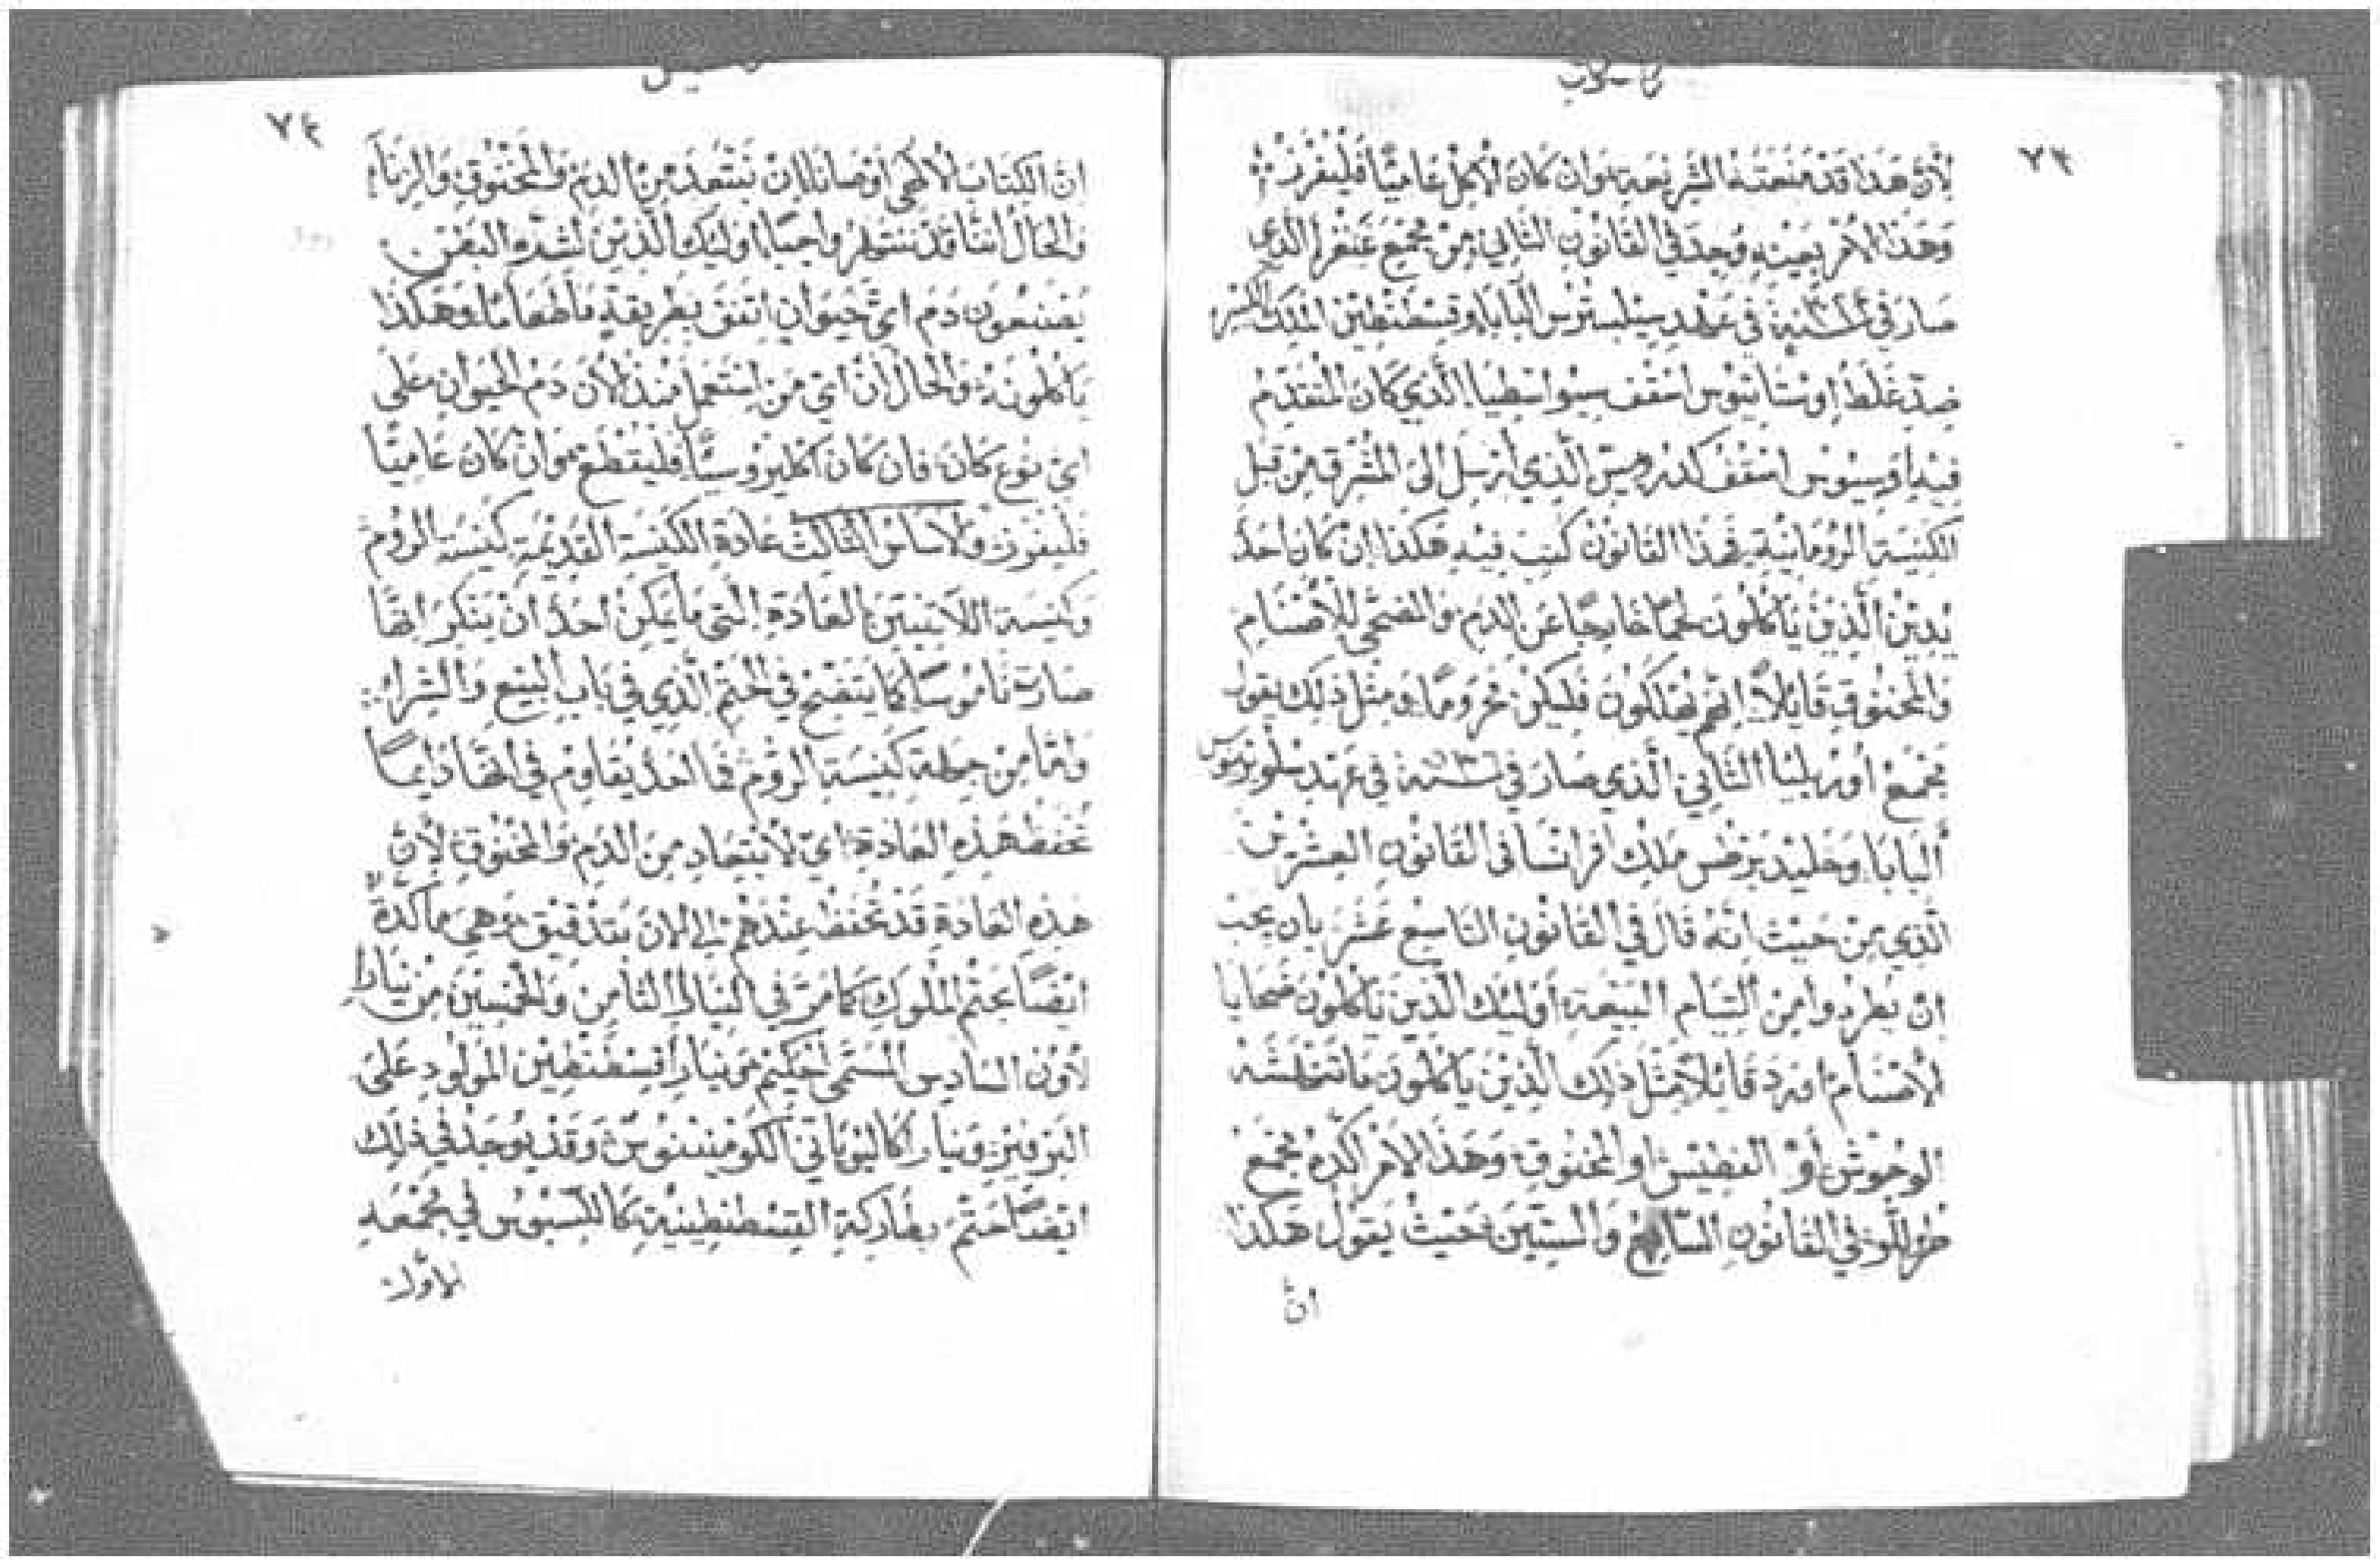 ٧٣
لأَنَّ هَذَا قَدْ مَنَعَتْهُ الشَّرِيعَةِ وَانْ كَانَ الأكِلْ عَامِيًّا فَلْيُفْرَزْ
وَهَذَا الأَمْرُ بِعَيْنِهِ وُجِدَ فِي القَانُونِ الثَّانِي مِنْ مَجْمَعِ غَنْغْرَا الَّذِي
صَارَ فِي سَنَة فِي عَهْدِ سِيلبِسْتِرُسِ البَابَا وَقِسْطَنْطِينَ المَلِك
ضِدّ غَلَط اوسْتَاتيُوس اسْقُف سِيوَاسْطِيَا الَّذِي كَانَ المُتَقَدّمُ
فِيهِ اوسِيُوس اسْقُفْ الَّذِي أُرْسِلَ الَى المَشْرِقِ مِنْ قِبَلِ
الكَنِيسَةِ الرُّومَانِيَّةِ فَهَذَا القَانُونْ كُتِبَ فِيهِ هَكَذَا انْ كَانَ احَدٌ
يُدِينُ الَّذِينَ يَأْكُلُونَ لَحْمًا خَارِجًا عَنِ الدَمِ وَالمُضَحَّى لِلأَصْنَامِ
وَالمَخْنُوقِ قَائِلاً انَّهُمْ يَهْلَكُونَ فَلْيَكُنْ مَحْرُومًا وَمِثْلَ ذَلِكَ يَقُولُ
مَجْمَعْ أورْبِلِيَا الثَّانِي الَّذِي صَارَ فِي سَنَة فِي عَهْدِ
البَابَا مَلِكْ افْرَانْسَا فِي القَانُونِ العِشْرِينَ
الَّذِي مِنْ حَيْثُ انَّهُ قَالَ فِي القَانُونِ التَاسِعْ عَشَرَ بِان يَجِبْ
انْ يُطْرِدُوا مِنْ الْتِيَامِ البَيْعَةِ أولَئِكَ الَّذِينَ يَأْكُلُونَ ضَحَايَا
الأصْنَامِ قَائِلاً مِثْلَ ذَلِكَ الَّذِينَ يَاكُلُونَ مَا
الوُحُوش أوْ الفَطِيسْ او المَخْنُوقِ وَهَذَا الأَمْرُ اكّدَهُ مَجْمَعْ
طْرُولّلُو فِي القَانُونِ السَّابِعْ وَالسِتِّينَ حَيْثُ يَقُولُ هَكَذَا
انّ
٧٤
انّ الكِتَابَ الالَهِي اوْصَانَا بِانْ نَبْتَعِدَ مِنَ الدَمِ وَالمَخْنُوقِ وَالزِنَاءِ
وَالحَالُ انَّنَا اوليِكَ الَّذِينَ لِشَرَهِ البَطْنِ
يَصْنَعُونَ دَم ايّ حَيَوانٍ اتفَقَ بِطَرِيقَةٍ مَا طَعَامًا وَهَكَذَا
يَاكُلُونَهُ وَالحَالُ انْ ايّ مَنِ اسْتَعْمَلَ مُنْذُ الأَن دَمَ الحَيَوانِ عَلَى
ايّ نَوْعٍ كَانَ فَانْ كَانَ اكْلِيرُوسِيًّا فَلْيُقْطَعْ وَانْ كَانَ عَامِيًّا
فَلْيُفْرَزْ وَالأَسَاسُ الثَّالِثْ عَادَةُ الكَنِيسَةِ القَدِيمَةِ كَنِيسَةِ الرُّومْ
وَكَنِيسَةِ اللاَتِينيِّينَ العَادَةِ الَّتِي مَا يُمْكِنْ احَدًا انْ يُنْكِرَ انَّهَا
صَارَتْ نَامُوسًا كَمَا يَتَّضِحْ فِي الخَتْمِ الَّذِي فِي بَابِ البَيْعِ وَالشِرَاء
وَامَّا مِنْ جِهَةِ كَنِيسَةِ الرُّومْ فَمَا احَدٌ يُقَاوِمْ فِي انّهَا دَائِمًا
تَحْفَظْ هَذِهِ العَادَةِ ايّ الابْتِعَادِ مِنَ الدَمِ وَالمَخْنُوقِ لأَنَّ
هَذِهِ العَادَةِ قَدْ تُحْفَظْ عِنْدَهُمْ الَى الآن بِتَدْقِيقٍ وَهِيَ مَأكّدَةٌ
ايْضًا بِخَتْمِ المُلُوكِ كَمَا مَرَّ فِي النيَارَا الثَّامِنْ وَالخَمْسِينَ مِنْ نِيَارَا
لاوُنَ السَّادِسِ المُسَمَّى الحَكِيمْ وَمِن نِيَارَا قِسْطَنْطِينَ المَوْلُودِ عَلَى
وَقَدْ يُوجَدْ فِي ذَلِكَ
ايْضًا خَتْمُ بطَارِكَةِ القِسْطَنْطِينِيَّةِ فِي مَجْمَعِهِ
الأوّل